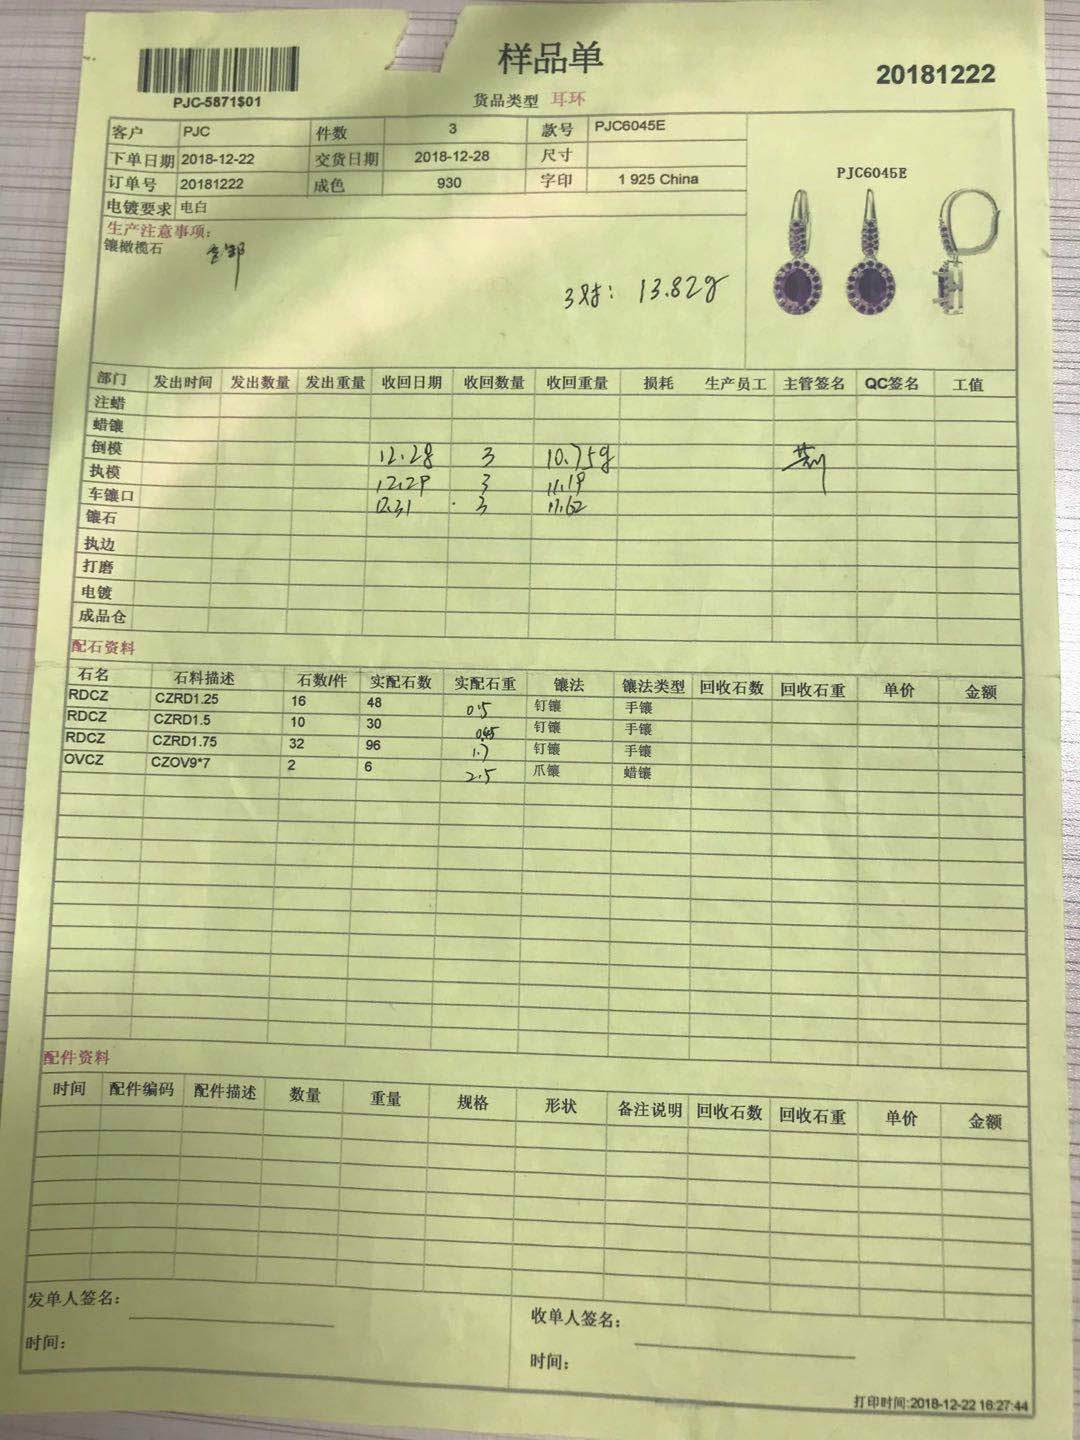 样品单
20181222
PJC-5871$01
货品类型 耳环
客户 PJC 件数 3 款号 PJC6045E
下单日期 2018-12-22 交货日期 2018-12-28 尺寸
订单号 20181222 成色 930 字印 1 925 China
电镀要求 电白
生产注意事项:
镶橄榄石
3对: 13.82g
PJC6045E
部门 发出时间 发出数量 发出重量 收回日期 收回数量 收回重量 损耗 生产员工 主管签名 QC签名 工值
注蜡
蜡镶
倒模 12.28 3 10.75g
执模 12.29 3 11.19
车镶口 12.31 3 11.62
镶石
执边
打磨
电镀
成品仓
配石资料
石名 石料描述 石数/件 实配石数 实配石重 镶法 镶法类型 回收石数 回收石重 单价 金额
RDCZ CZRD1.25 16 48 0.5 钉镶 手镶
RDCZ CZRD1.5 10 30 0.45 钉镶 手镶
RDCZ CZRD1.75 32 96 1.7 钉镶 手镶
OVCZ CZOV9*7 2 6 2.5 爪镶 蜡镶
配件资料
时间 配件编码 配件描述 数量 重量 规格 形状 备注说明 回收石数 回收石重 单价 金额
发单人签名:
收单人签名:
时间:
时间:
打印时间:2018-12-22 16:27:44